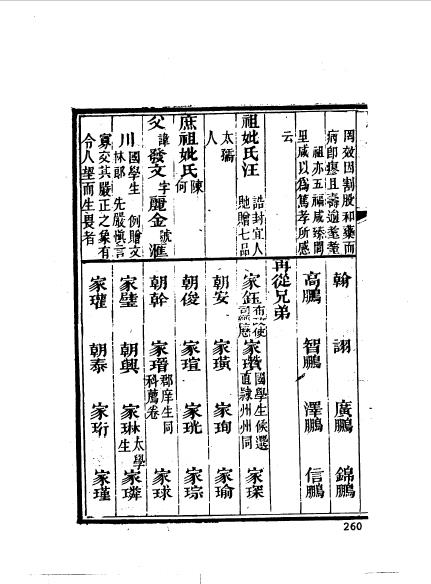 罔效因割股和藥而
病卽瘳且壽逾耄耋
祖亦五福咸臻閭
里咸以爲篤孝所感
云
祖妣氏汪 誥封宜人 貤贈七品
太孺人
庶祖妣氏陳 何
父 諱發文字麗金號滙
川 國學生 例贈文林郎 先嚴慎言
寡交其嚴正之象有
令人望而生畏者
翰 詡 廣鵬 錦鵬
高鵬 智鵬 澤鵬 信鵬
再從兄弟
家鈺 布政使司 家瓚 國學生候選直隸州州同 家琛
朝安 家璜 家珣 家瑜
朝俊 家瑄 家珖 家琮
朝幹 家瑨 郡庠生同科薦卷 家球
家璧 朝興 家琳 太學生 家璘
家瓘 朝泰 家珩 家瑾
260